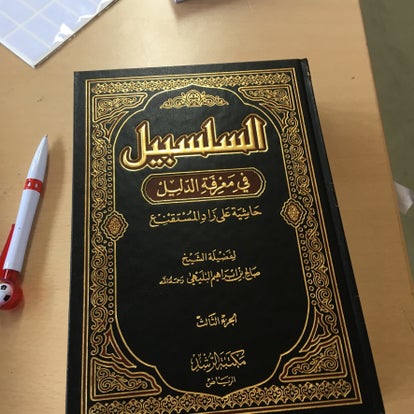 السلسبيل
في معرفة الدليل
حاشية على زاد المستقنع
لفضيلة الشيخ
صالح بن ابراهيم البليهي رحمه الله
الجزء الثالث
مكتبة الرشد
الرياض